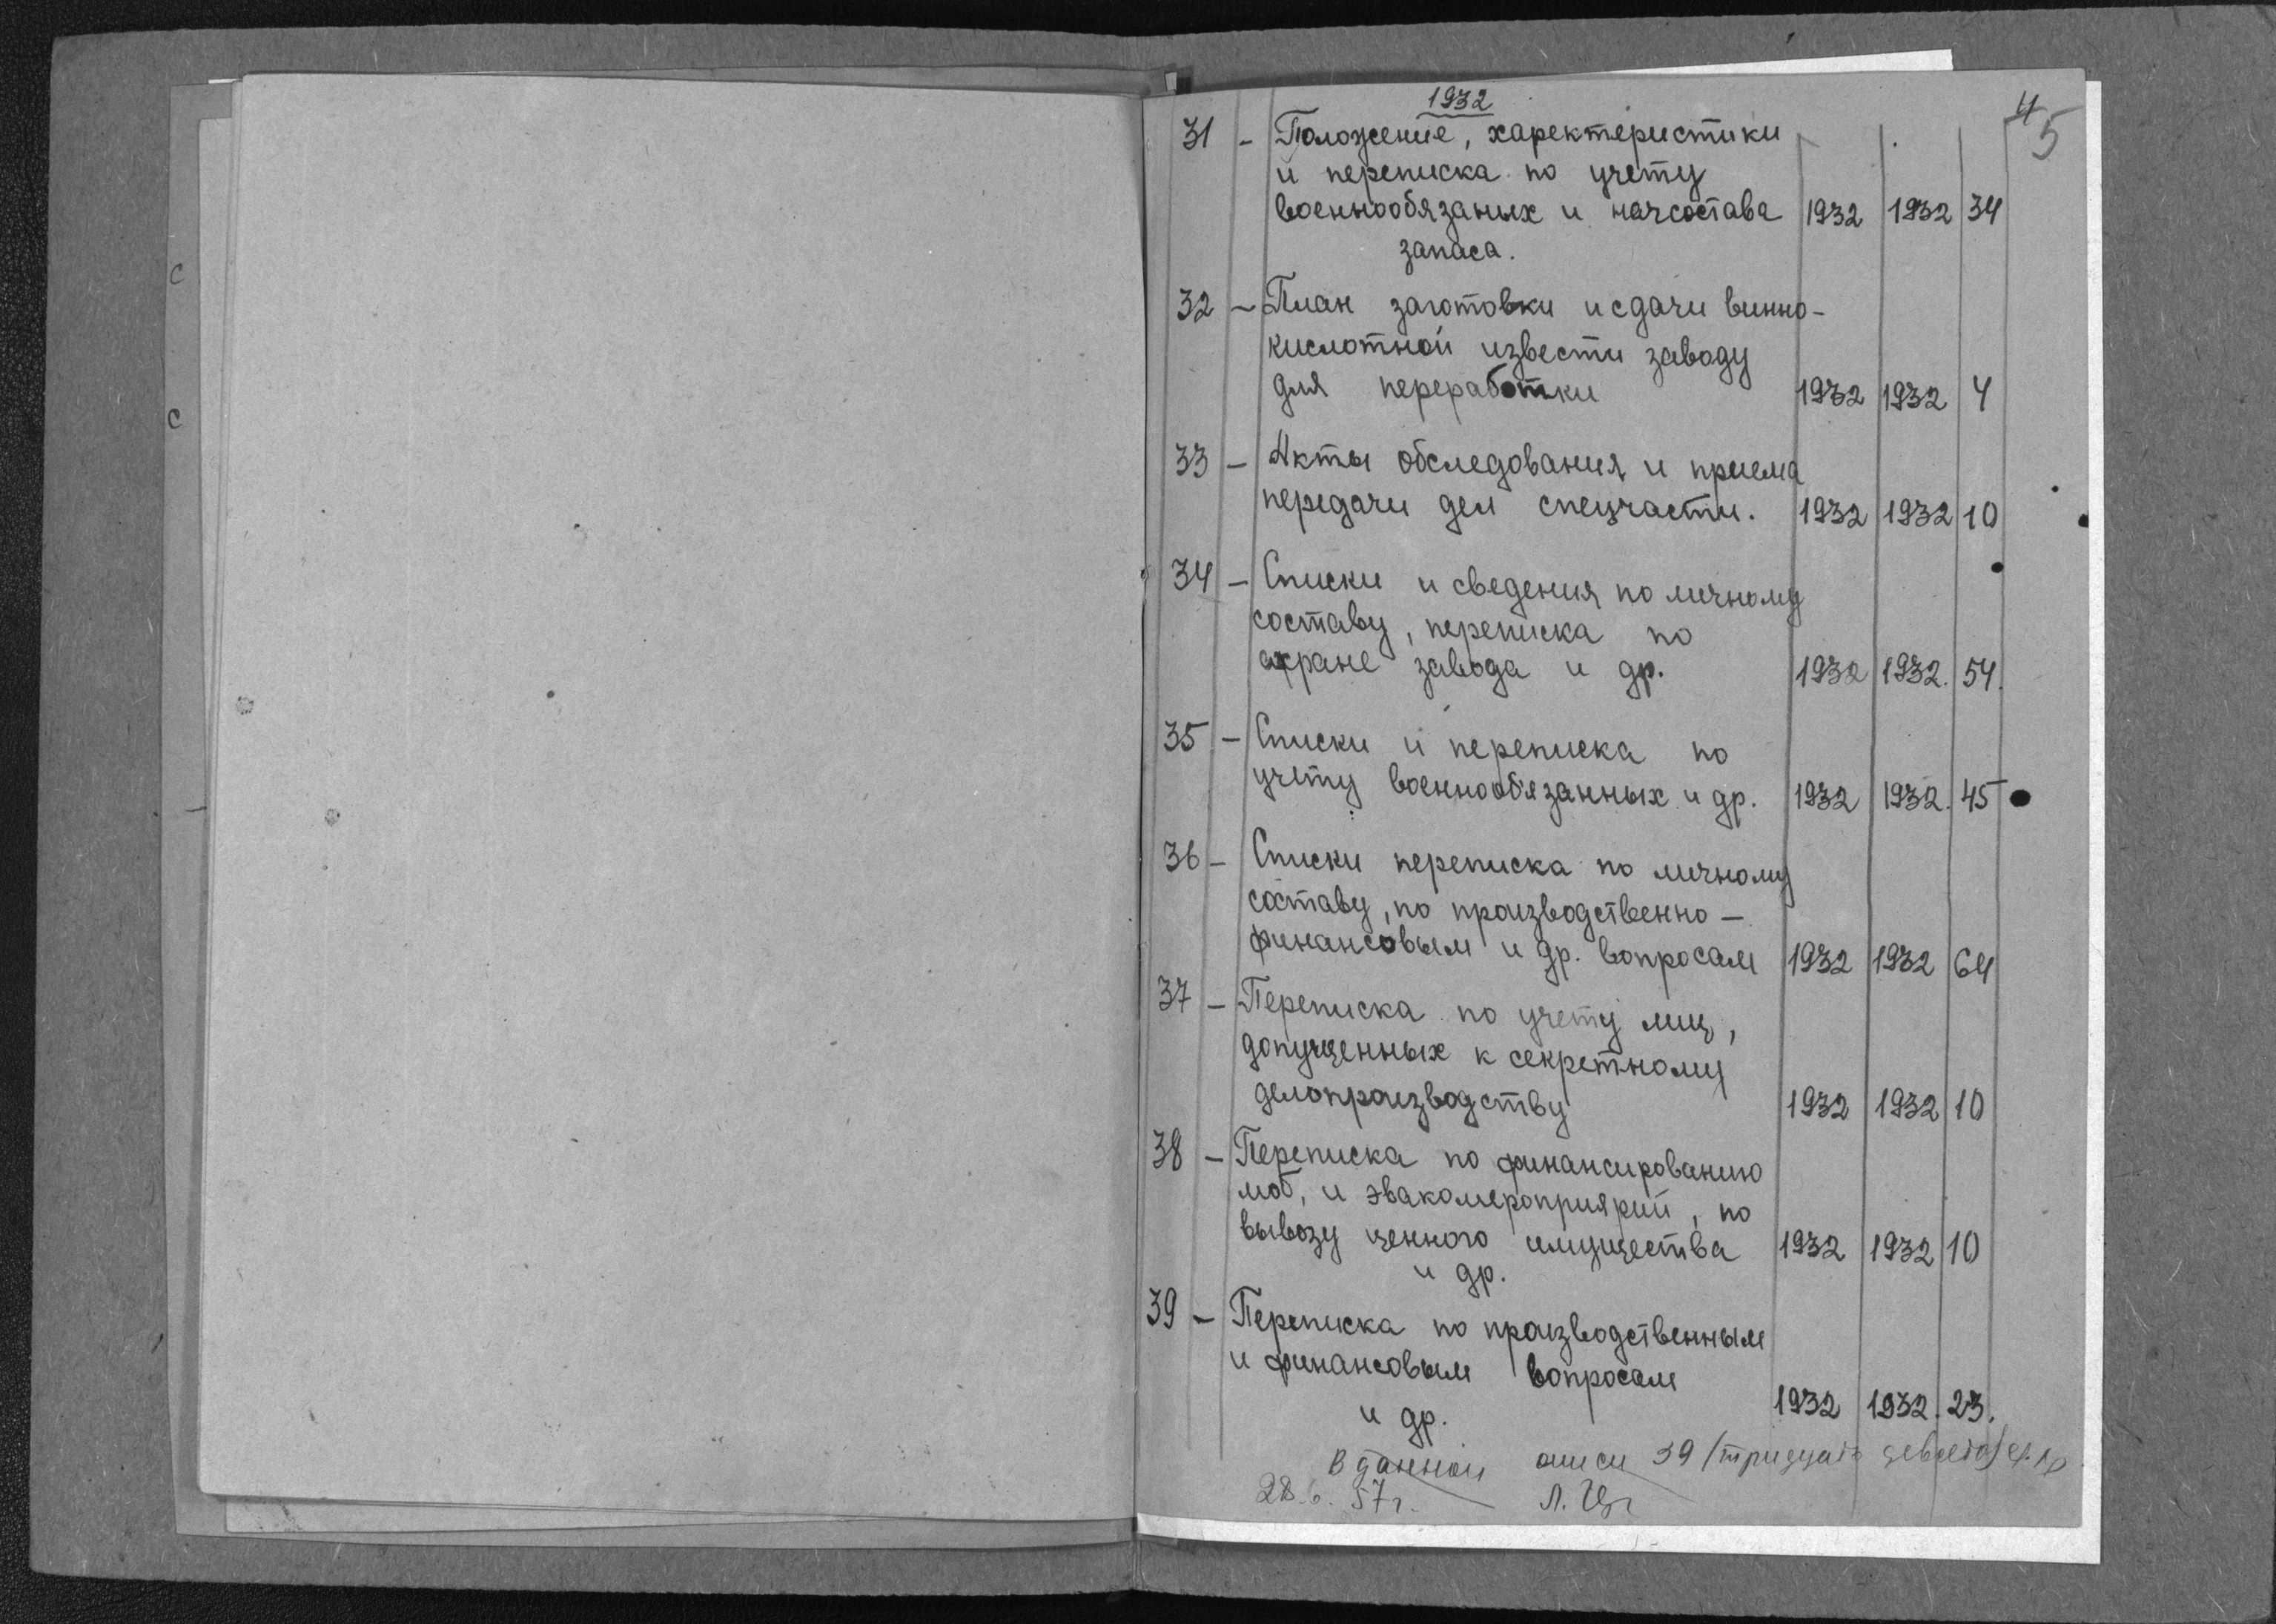 4
5
1932
31 - Положение, характеристики
и переписка по учету
военнообязаных и начсостава 1932 1932 34
запаса.
32 - План заготовки и сдачи винно-
кислотной извести заводу
для переработки 1932 1932 4
33 - Акты обследования и приема
передачи дел спецчасти. 1932 1932 10
34 - Списки и сведения по личному
составу, переписка по
охране завода и др. 1932 1932. 54.
35 - Списки и переписка по
учету военнообязанных и др. 1932 1932. 45
36 - Списки переписка по личному
составу, по производственно -
финансовым и др. вопросам 1932 1932 64
37 - Переписка по учету лиц,
допущенных к секретному
делопроизводству 1932 1932 10
38 - Переписка по финансированию
моб, и эвакомероприярий, по
вывозу ценного имущества 1932 1932 10
и др.
39 - Переписка по производственным
и финансовым вопросам
1932 1932. 23.
и др.
В данной описи 39 (тридцать девять)
28.6.57г.
с
с